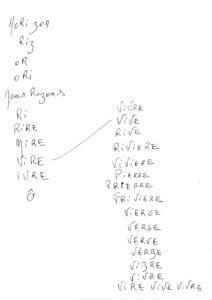 HORIZON
RIZ
OR
ORI
nous Rizons
RI
RIRE
MIRE
VIRE
IVRE
Ô
VIVRE
VIVE
RIVE
RIVIERE
VIVIERE
PIERRE
PRIERRE
TRIVIERE
VIERGE
VERGE
VERVE
VERBE
VIBRE
VIVRE
VIRE VIVE VIVRE